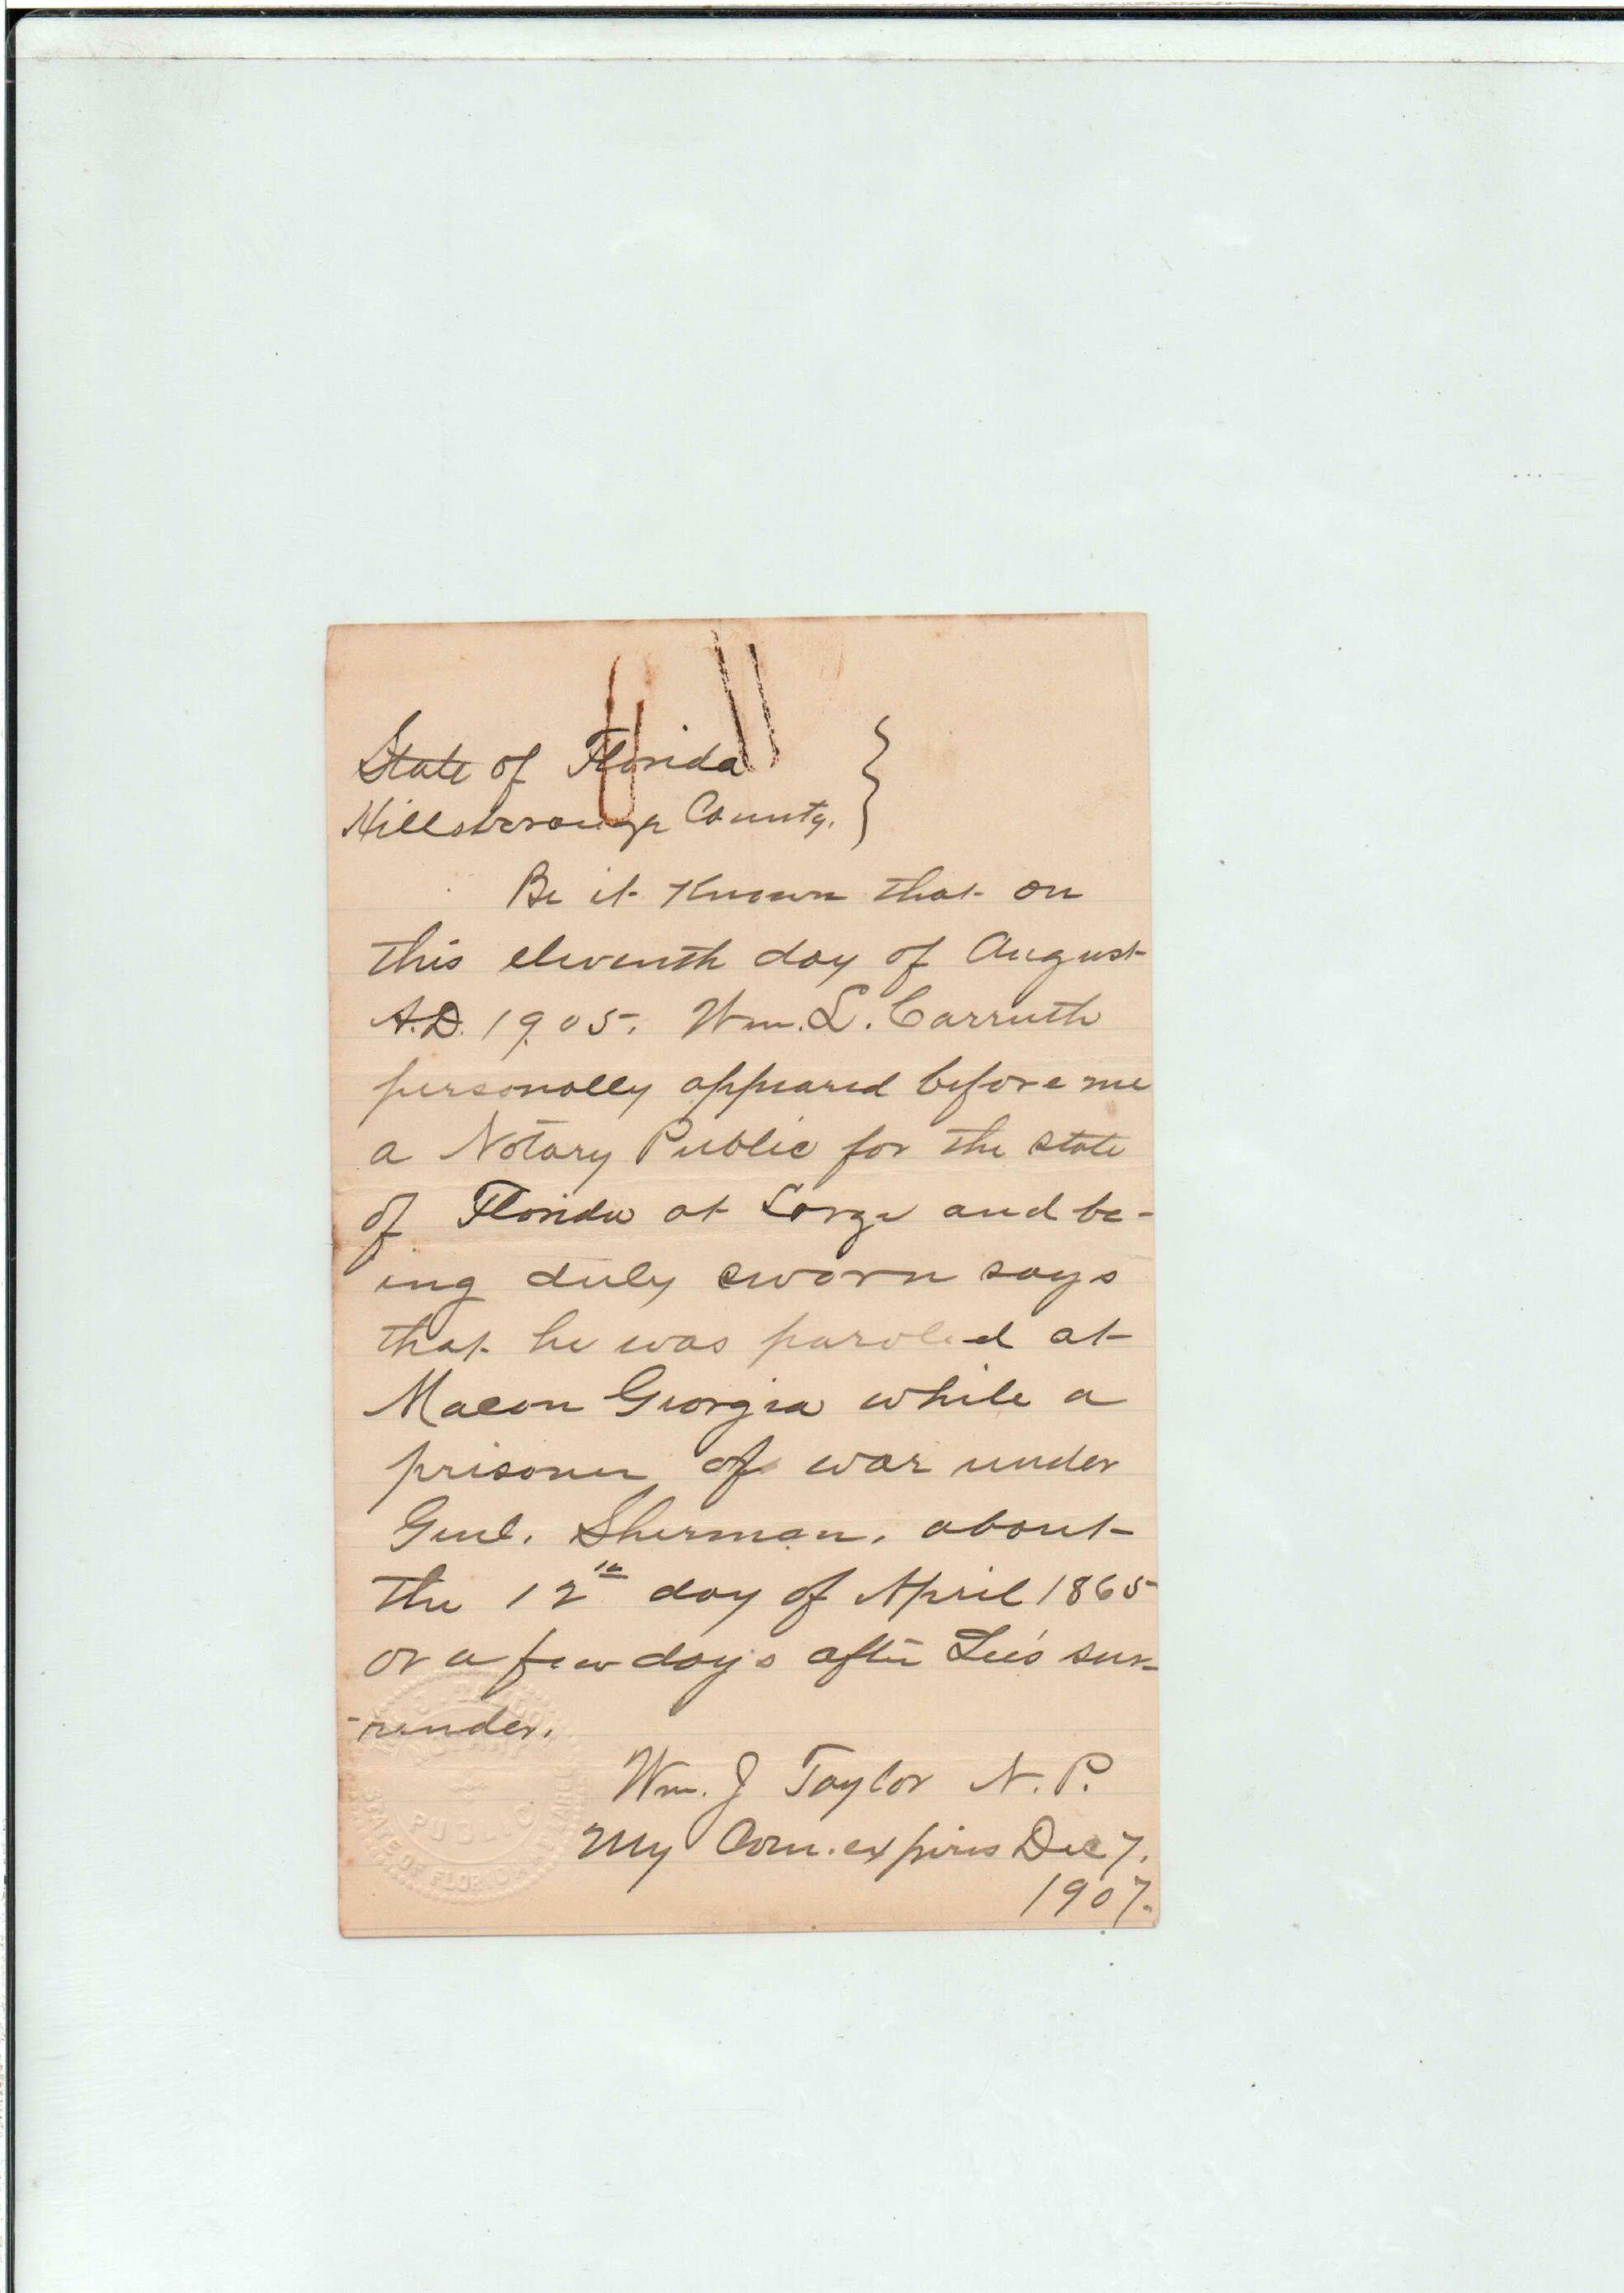 State of Florida
Hillsborough County.
Be it Known that on
this eleventh day of August
A.D. 1905. Wm. L. Carruth
personally appeared before me
a Notary Public for the state
of Florida at Large and be-
ing duly sworn says
that he was paroled at
Macon Georgia while a
prisoner of war under
Genl. Sherman. about
the 12th day of April 1865
or a few days after Lee's sur-
-render.
Wm. J Taylor N. P.
My Com. expires Dec 7.
1907.
NOTARY
PUBLIC
STATE OF FLORIDA AT LARGE